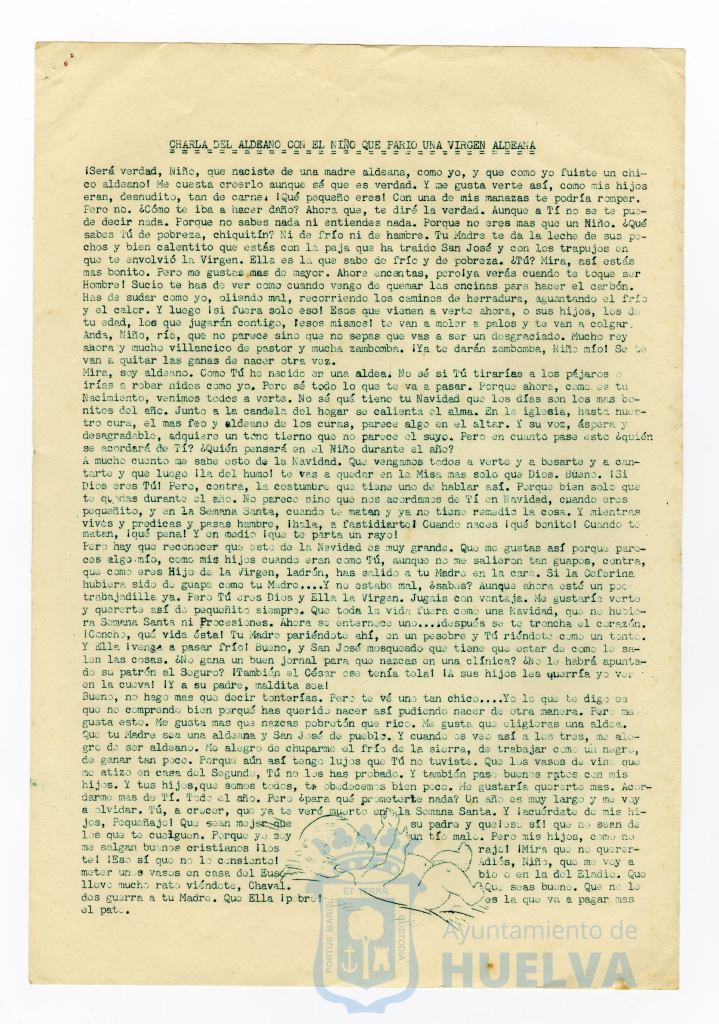 CHARLA DEL ALDEANO CON EL NIÑO QUE PARIO UNA VIRGEN ALDEANA
¡Será verdad, Niño, que naciste de una madre aldeana, como yo, y que como yo fuiste un chi-
co aldeano! Me cuesta creerlo aunque sé que es verdad. Y me gusta verte así, como mis hijos
eran, desnudito, tan de carne. ¡Qué pequeño eres! Con una de mis manazas te podría romper.
Pero no. ¿Cómo te iba a hacer daño? Ahora que, te diré la verdad. Aunque a Tí no se te pue-
de decir nada. Porque no sabes nada ni entiendes nada. Porque no eres mas que un Niño. ¿Qué
sabes Tú de pobreza, chiquitín? Ni de frío ni de hambre. Tu Madre te da la leche de sus pe-
chos y bien calentito que estás con la paja que ha traido San José y con los trapujos en
que te envolvió la Virgen. Ella es la que sabe de frío y de pobreza. ¿Tú? Mira, así estás
mas bonito. Pero me gustas mas de mayor. Ahora encantas, pero¡ya verás cuando te toque ser
Hombre! Sucio te has de ver como cuando vengo de quemar las encinas para hacer el carbón.
Has de sudar como yo, oliendo mal, recorriendo los caminos de herradura, aguantando el frío
y el calor. Y luego ¡si fuera solo eso! Esos que vienen a verte ahora, o sus hijos, los de
tu edad, los que jugarán contigo, ¡esos mismos! te van a moler a palos y te van a colgar.
Anda, Niño, ríe, que no parece sino que no sepas que vas a ser un desgraciado. Mucho rey
ahora y mucho villancico de pastor y mucha zambomba. ¡Ya te darán zambomba, Niño mío! Se te
van a quitar las ganas de nacer otra vez.
Mira, soy aldeano. Como Tú he nacido en una aldea. No sé si Tú tirarías a los pájaros o
irías a robar nidos como yo. Pero sé todo lo que te va a pasar. Porque ahora, como es tu
Nacimiento, venimos todos a verte. No sé qué tiene tu Navidad que los días son los mas bo-
nitos del año. Junto a la candela del hogar se calienta el alma. En la iglesia, hasta nues-
tro cura, el mas feo y aldeano de los curas, parece algo en el altar. Y su voz, áspera y
desagradable, adquiere un tono tierno que no parece el suyo. Pero en cuanto pase esto ¿quién
se acordará de Tí? ¿Quién pensará en el Niño durante el año?
A mucho cuento me sabe esto de la Navidad. Que vengamos todos a verte y a besarte y a can-
tarte y que luego ¡la del humo! te vas a quedar en la Misa mas solo que Dios. Bueno. ¡Si
Dios eres Tú! Pero, contra, la costumbre que tiene uno de hablar así. Porque bien solo que
te quedas durante el año. No parece sino que nos acordamos de Tí en Navidad, cuando eres
pequeñito, y en la Semana Santa, cuando te matan y ya no tiene remedio la cosa. Y mientras
vives y predicas y pasas hambre, ¡hala, a fastidiarte! Cuando naces ¡qué bonito! Cuando te
matan, ¡qué pena! Y en medio ¡que te parta un rayo!
Pero hay que reconocer que esto de la Navidad es muy grande. Que me gustas así porque pare-
ces algo mío, como mis hijos cuando eran como Tú, aunque no me salieron tan guapos, contra,
que como eres Hijo de la Virgen, ladrón, has salido a tu Madre en la cara. Si la Ceferina
hubiera sido de guapa como tu Madre....Y no estaba mal, ¿sabes? Aunque ahora esté un poco
trabajadilla ya. Pero Tú eres Dios y Ella la Virgen. Jugais con ventaja. Me gustaría verte
y quererte así de pequeñito siempre. Que toda la vida fuera como una Navidad, que no hubie-
ra Semana Santa ni Procesiones. Ahora se enternece uno....¡después se te troncha el corazón.
¡Concho, qué vida ésta! Tu Madre pariéndote ahí, en un pesebre y Tú riéndote como un tonto.
Y Ella ¡venga a pasar frío! Bueno, y San José mosqueado que tiene que estar de como le sa-
len las cosas. ¿No gana un buen jornal para que nazcas en una clínica? ¿No le habrá apunta-
do su patrón al Seguro? ¡También el César ese tenía tela! ¡A sus hijos les querría yo ver
en la cueva! ¡Y a su padre, maldita sea!
Bueno, no hago mas que decir tonterías. Pero te vé uno tan chico....Yo lo que te digo es
que no comprendo bien porqué has querido nacer así pudiendo nacer de otra manera. Pero me
gusta esto. Me gusta mas que nazcas pobretón que rico. Me gusta que eligieras una aldea.
Que tu Madre sea una aldeana y San José de pueblo. Y cuando os veo así a los tres, me ale-
gro de ser aldeano. Me alegro de chuparme el frío de la sierra, de trabajar como un negro,
de ganar tan poco. Porque aún así tengo lujos que Tú no tuviste. Que los vasos de vino que
me atizo en casa del Segundo, Tú no los has probado. Y también paso buenos ratos con mis
hijos. Y tus hijos,que somos todos, te obedecemos bien poco. Me gustaría quererte mas. Acor-
darme mas de Tí. Todo el año. Pero ¿para qué prometerte nada? Un año es muy largo y me voy
a olvidar. Tú, a crecer, que ya te veré muerto en la Semana Santa. Y ¡acuérdate de mis hi-
jos, Pequeñajo! Que sean mejor que su padre y que¡eso sí! que no sean de
los que te cuelguen. Porque yo soy un tío malo. Pero mis hijos, como no
me salgan buenos cristianos ¡los rajo! ¡Mira que no querer-
te! ¡Eso sí que no lo consiento! Adiós, Niño, que me voy a
meter unos vasos en casa del Euse bio o en la del Eladio. Que
llevo mucho rato viéndote, Chaval. Que seas bueno. Que no le
dos guerra a tu Madre. Que Ella ¡pobre! es la que va a pagar mas
el pato.
PORTUS MARIS ET TERRAE CUSTODIA
Ayuntamiento de
HUELVA